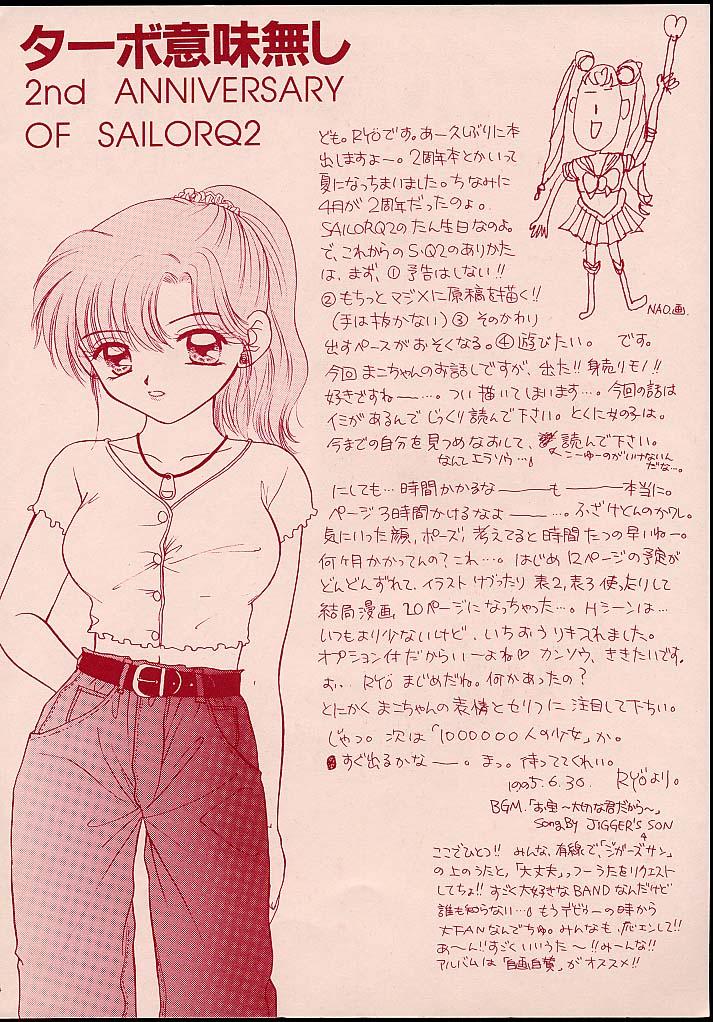 ターボ意味無し
2nd ANNIVERSARY
OF SAILORQ2
ども。RYÖです。あー久しぶりに本
出しますよー。2周年本とかいって
夏になっちまいました。ちなみに
4月が2周年だったのよ。
SAILORQ2のたん生日なのよ。
で、これからのS・Q2のありかた
は、まず、①予告はしない!!
②もちっとマジメに原稿を描く!!
(手は抜かない)③そのかわり
出すペースがおそくなる。④遊びたい。です。
今回まこちゃんのお話しですが、出た!!身売りモノ!!
好きですねー…。つい描いてしまいます…。今回の話は
イミがあるんでじっくり読んで下さい。とくに女の子は。
今までの自分を見つめなおして、読んで下さい。
なんてエラソウ…。
こーゆーのがいけないん
だな…。
にしても…時間かかるな――も――本当に。
ページ3時間かけるなよ――…。ふざけとんのかワレ。
気にいった顔、ポーズ、考えてると時間たつの早いねー。
何ヶ月かかってんの?これ…。はじめ12ページの予定が
どんどんずれて、イラストけずったり表2,表3使ったりして
結局漫画20ページになっちゃった…。Hシーンは…
いつもより少ないけど、いちおうリキ入れました。
オプション付だからい〜よね♡カンソウ、ききたいです。
RYÖまじめだね。何かあったの?
とにかくまこちゃんの表情とセリフに注目して下ちい。
じゃっ。次は「1000000人の少女」か。
すぐ出るかな――。まっ。待っててくれい。
1995.6.30. RYÖより。
BGM.「お宝〜大切な君だから〜」
Song By JIGGER'S SON
ここでひとつ!!みんな、有線で、「ジガーズサン」
の上のうたと、「大丈夫」っつーうたをリクエスト
してちょ!!すごく大好きなBANDなんだけど
誰も知らない…。もうデビューの時から
大FANなんでちゅ。みんなも、応エンして!!
あ〜ん!!すごくいいうた〜!!み〜んな!!
アルバムは「自画自賛」がオススメ!!
NAO.画.